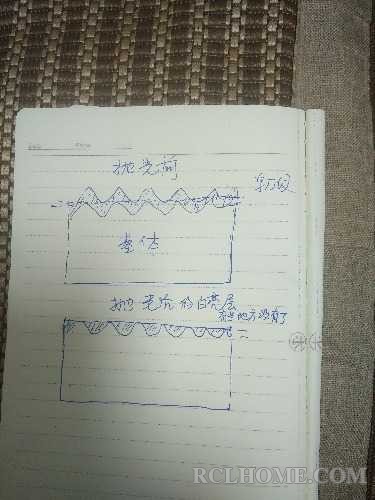 抛光前
基体
抛光后的白亮层
有些地方没有了
RCLHOME.COM